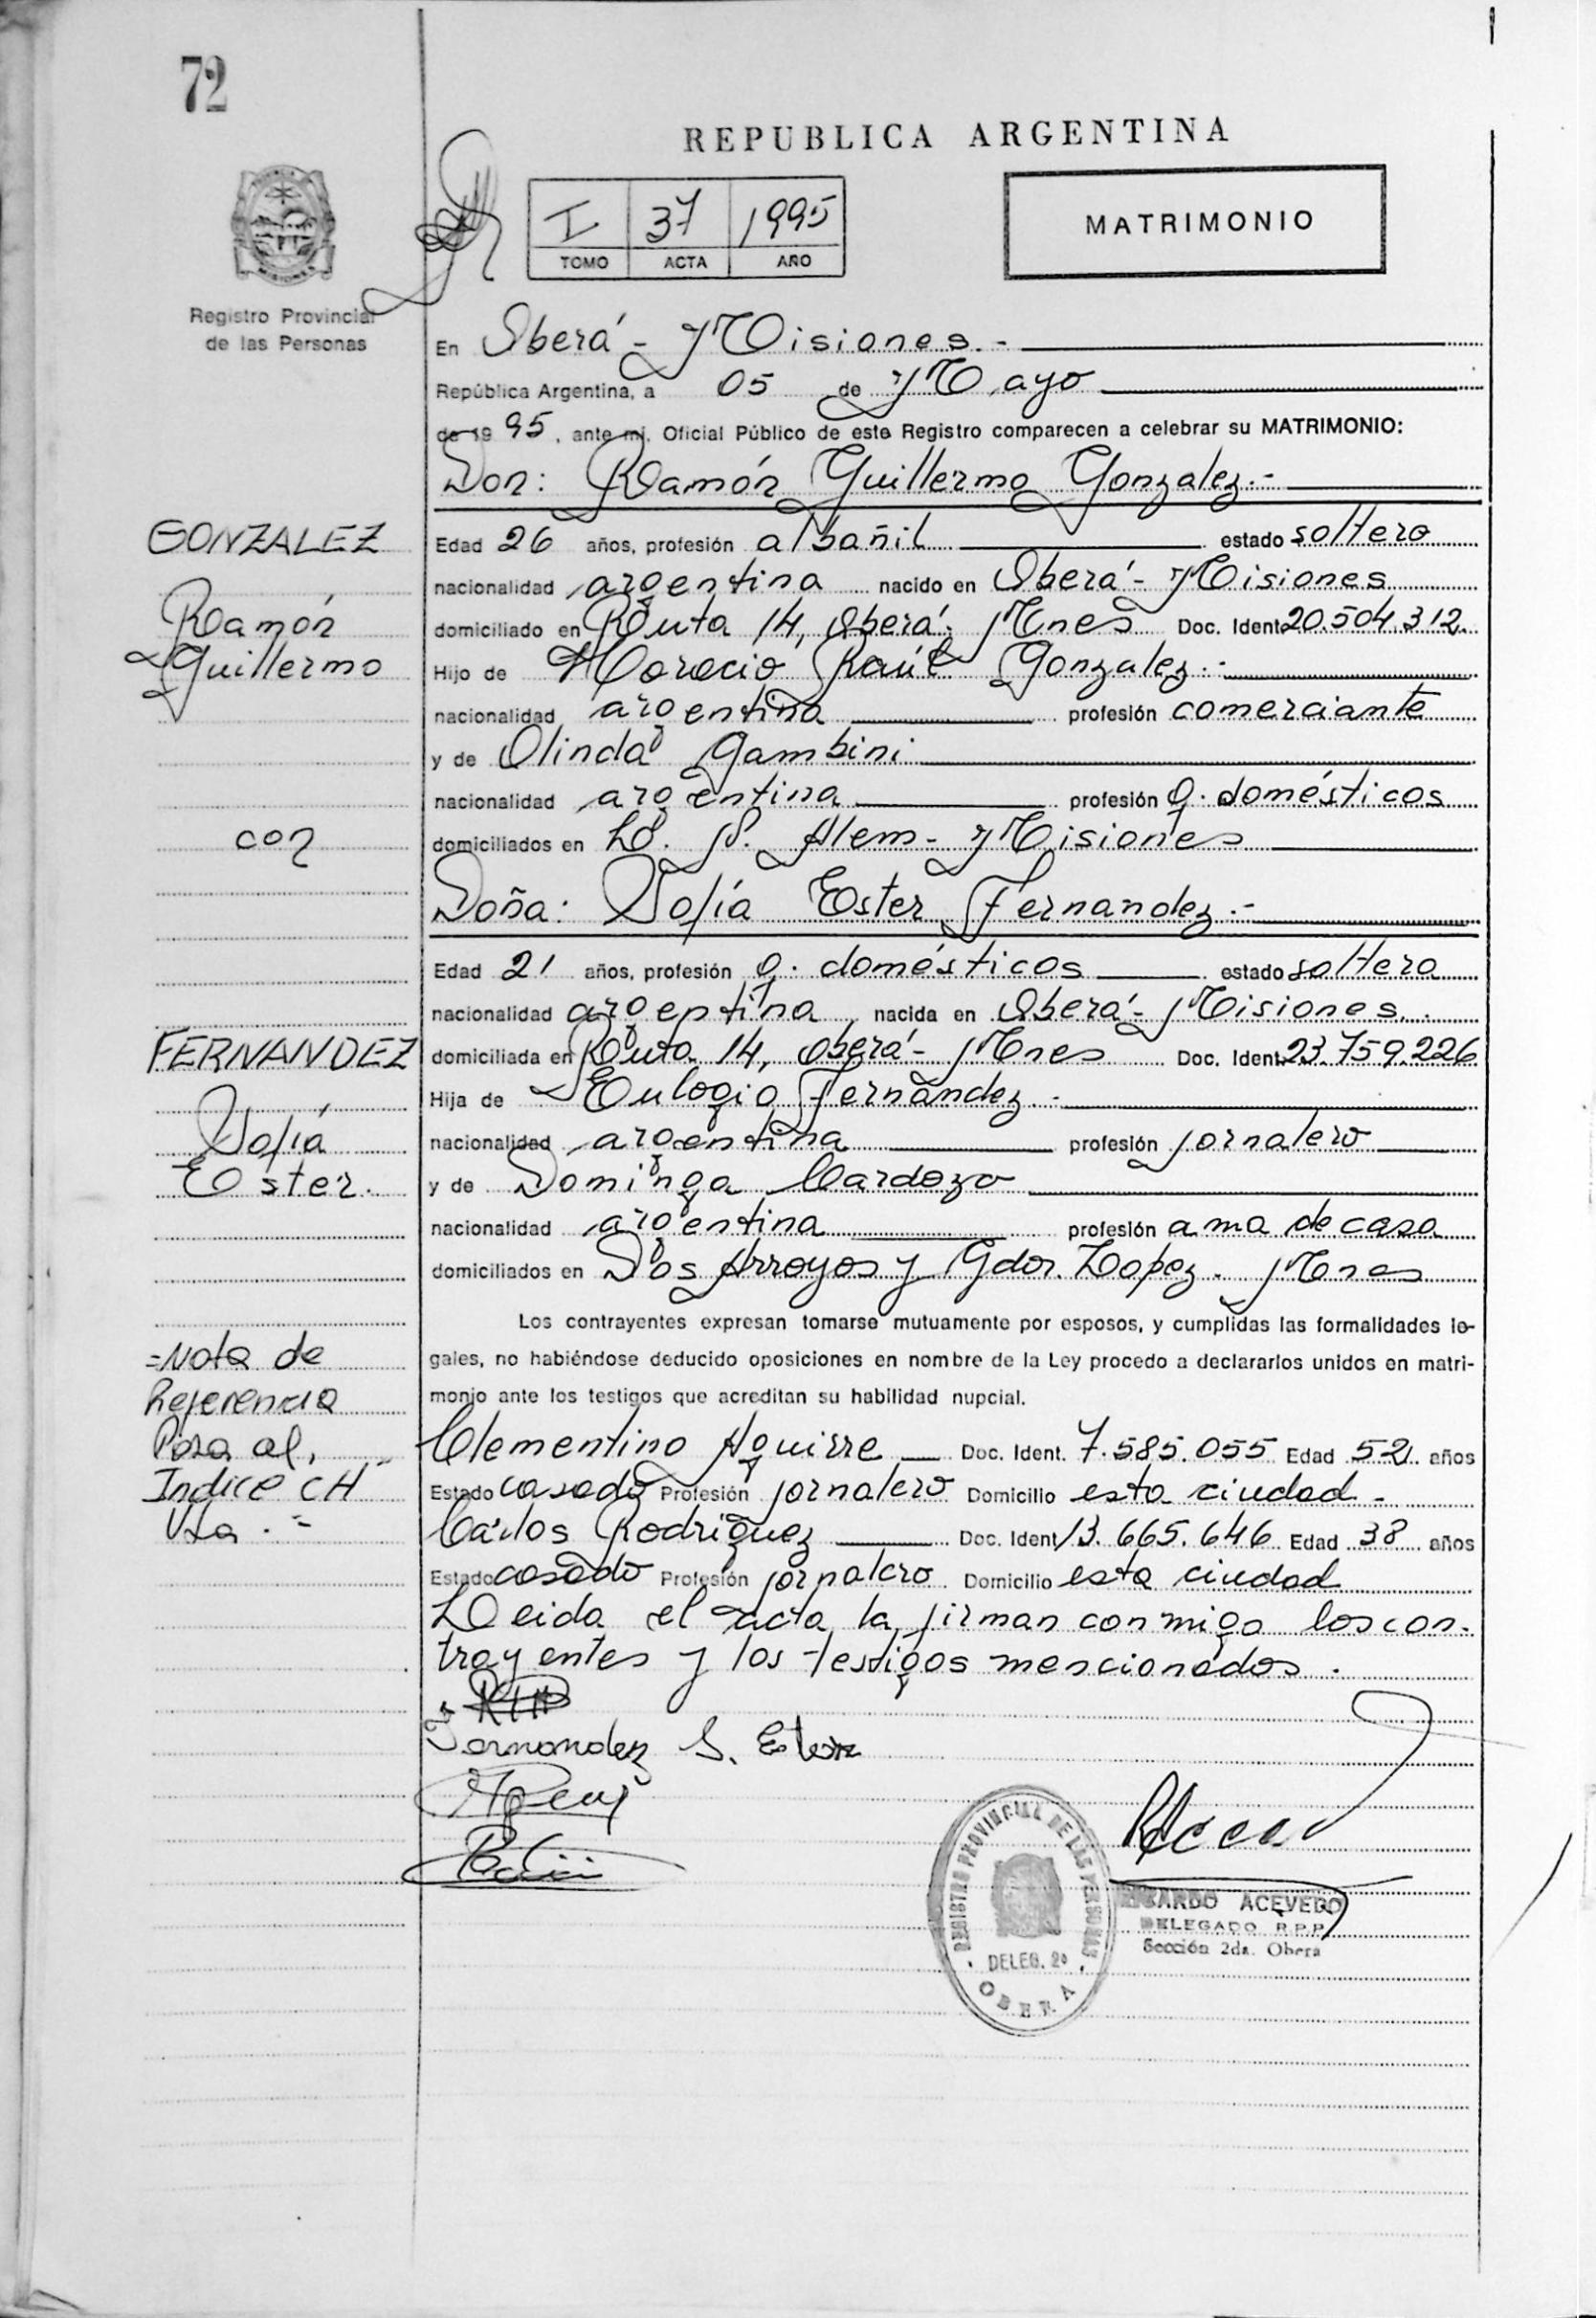 72
REPUBLICA ARGENTINA
MATRIMONIO
I 37 1995
TOMO ACTA AÑO
Registro Provincial
de las Personas
En Oberá - Misiones.-
República Argentina, a 05 de Mayo
de 1995, ante mí, Oficial Público de este Registro comparecen a celebrar su MATRIMONIO:
Don: Ramón Guillermo Gonzalez.-
GONZALEZ
Ramón
Guillermo
Edad 26 años, profesión albañil estado soltero
nacionalidad argentina nacido en Oberá - Misiones
domiciliado en Ruta 14, Oberá - Mnes Doc. Ident 20.504.312.
Hijo de Horacio Raúl Gonzalez.-
nacionalidad argentina profesión comerciante
y de Olinda Gambini
nacionalidad argentina profesión q. domésticos
con
domiciliados en L. N. Alem - Misiones
Doña: Sofía Ester Fernandez.-
Edad 21 años, profesión q. domésticos estado soltera
nacionalidad argentina, nacida en Oberá - Misiones.
FERNANDEZ
Sofía
Ester.
domiciliada en Ruta 14, Oberá - Mnes Doc. Ident 23.759.226
Hija de Eulogio Fernández.-
nacionalidad argentina profesión jornalero
y de Dominga Cardozo
nacionalidad argentina profesión ama de casa
domiciliados en Dos Arroyos y Gdor. Lopez. Mnes
Los contrayentes expresan tomarse mutuamente por esposos, y cumplidas las formalidades le-
gales, no habiéndose deducido oposiciones en nombre de la Ley procedo a declararlos unidos en matri-
monio ante los testigos que acreditan su habilidad nupcial.
=Nota de
Referencia
Para al,
Indice CH"
Clementino Aguirre Doc. Ident. 7.585.055 Edad 52 años
Estado casado Profesión jornalero Domicilio esta ciudad -
Carlos Rodriguez Doc. Ident 13.665.646 Edad 38 años
Estado casado Profesión jornalero Domicilio esta ciudad
Leida el acta la firman conmigo los con-
trayentes y los testigos mencionados.
Fernandez S. Ester
REGISTRO PROVINCIAL DE LAS PERSONAS
DELEG. 2a
OBERA
RICARDO ACEVEDO
DELEGADO R.P.P.
Sección 2da. Oberá